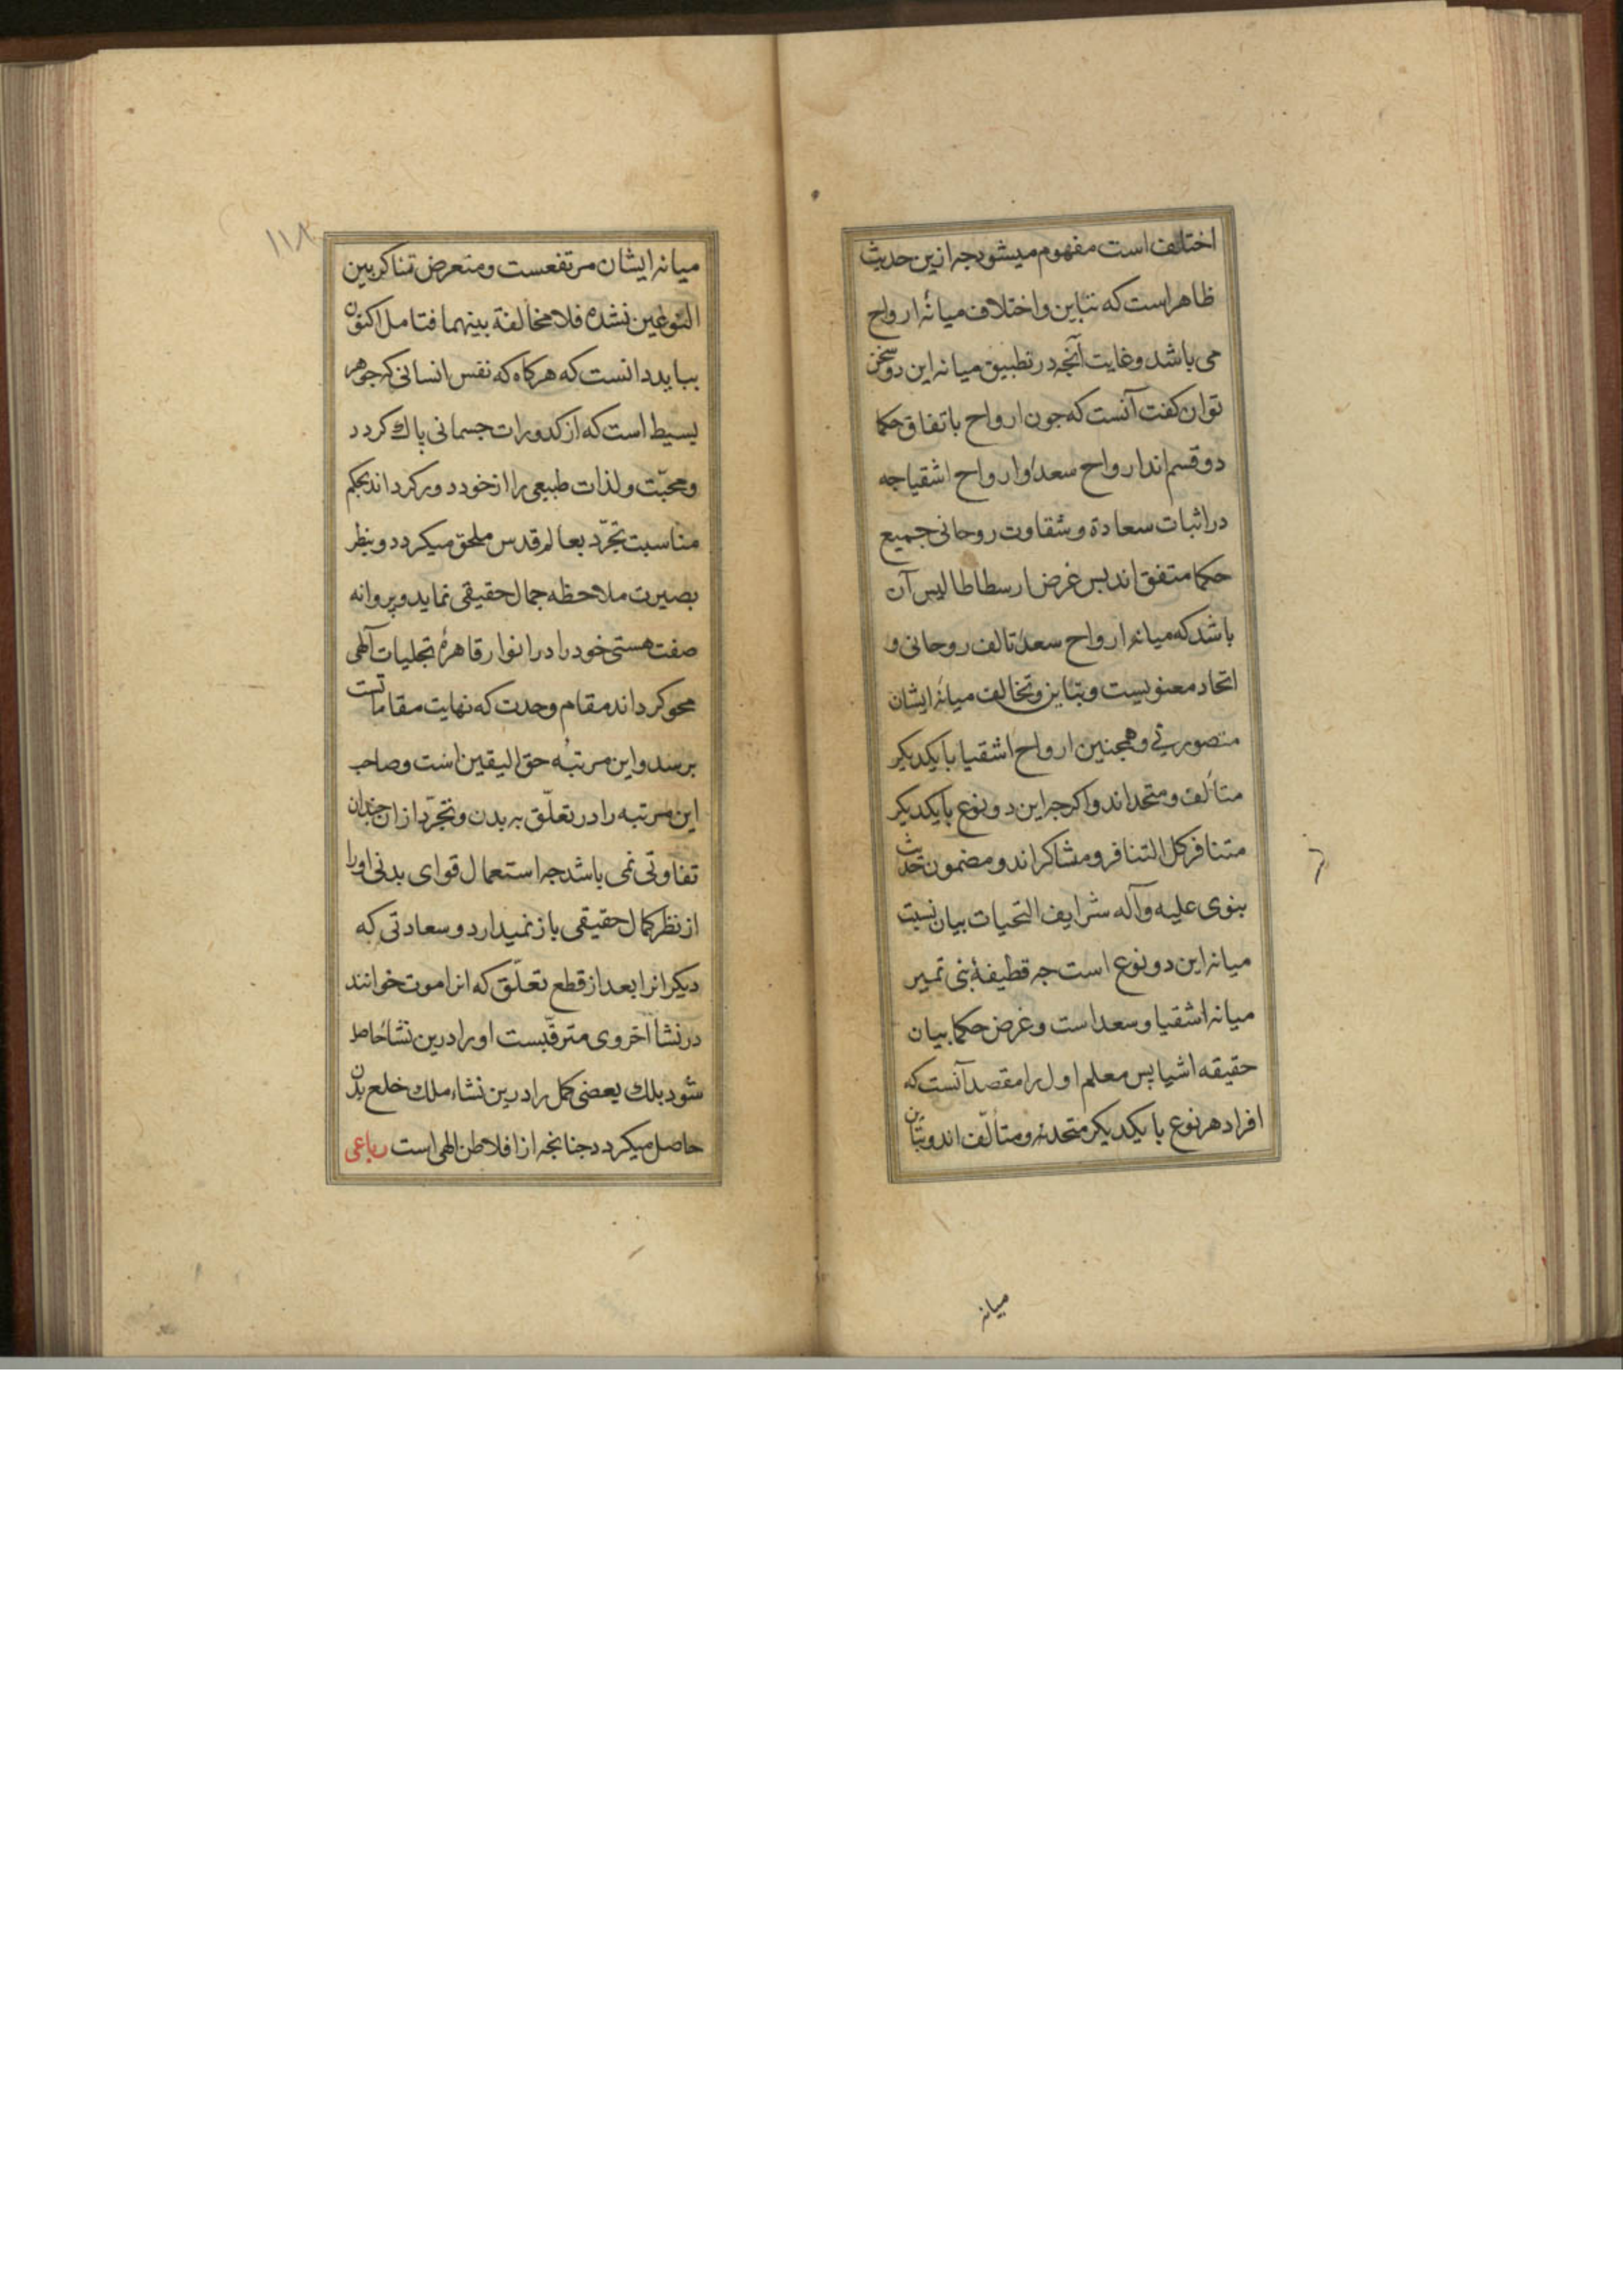 اختلف است مفهوم میشود جه ازین حدیث
ظاهراست که تباین و اختلاف میانهٔ ارواح
می باشد و غایت آنجه در تطبیق میانه این دو سخن
توان کفت آنست که جون ارواح باتفاق حکما
دو قسم اند ارواح سعدا و ارواح اشقیا جه
در اثبات سعادة و شقاوت روحانی جمیع
حکما متفق اند بس غرض ارسطاطالیس آن
باشد که میانه ارواح سعدا تالف روحانی و
اتحاد معنویست و تباین و تخالف میانهٔ ایشان
متصور نی و همجنین ارواح اشقیا بایکدیکر
متألف و متحد اند و اکرجه این دو نوع بایکدیکر
متنافر کل التنافر و متناکر اند و مضمون حدیث
بنوی علیه و آله شرایف التحیات بیان نسبت
میانه این دو نوع است جه قطیفهٔ بنی تمیر
میانه اشقیا و سعداست و غرض حکما بیان
حقیقه اشیا پس معلم اول را مقصد آنست که
افراد هر نوع با یکدیکر متحد و متألف اند و تباین
میانه
۱۱۳
میانه ایشان مرتفعست و متعرض تناکر بین
النوعین نشده فلا مخالفة بینهما فتامل اکنون
بباید دانست که هرکاه که نفس انسانی که جوهر
بسیط است که از کدورات جسمانی پاک کردد
و محبّت و لذات طبیعی را از خود دور کرداند بحکم
مناسبت تجرّد بعالم قدس ملحق میکردد و بنظر
بصیرت ملاحظه جمال حقیقی نماید و پروانه
صفت هستی خود را در انوار قاهرهٔ تجلیات آلهی
محو کرداند مقام وحدت که نهایت مقاماتست
برسد و این مرتبهٔ حق الیقین است و صاحب
این مرتبه را در تعلّق به بدن و تجرّد از ان جندان
تفاوتی نمی باشد جه استعمال قوای بدنی او را
از نظر کمال حقیقی باز نمیدارد و سعادتی که
دیکرانرا بعد از قطع تعلّق که انرا موت خوانند
در نشأ آخروی مترقّبست او را درین نشأ حاصل
شود بلک بعضی کمل را درین نشاء ملک خلع بدن
حاصل میکردد جنانجه از افلاطن الهی است رباعی